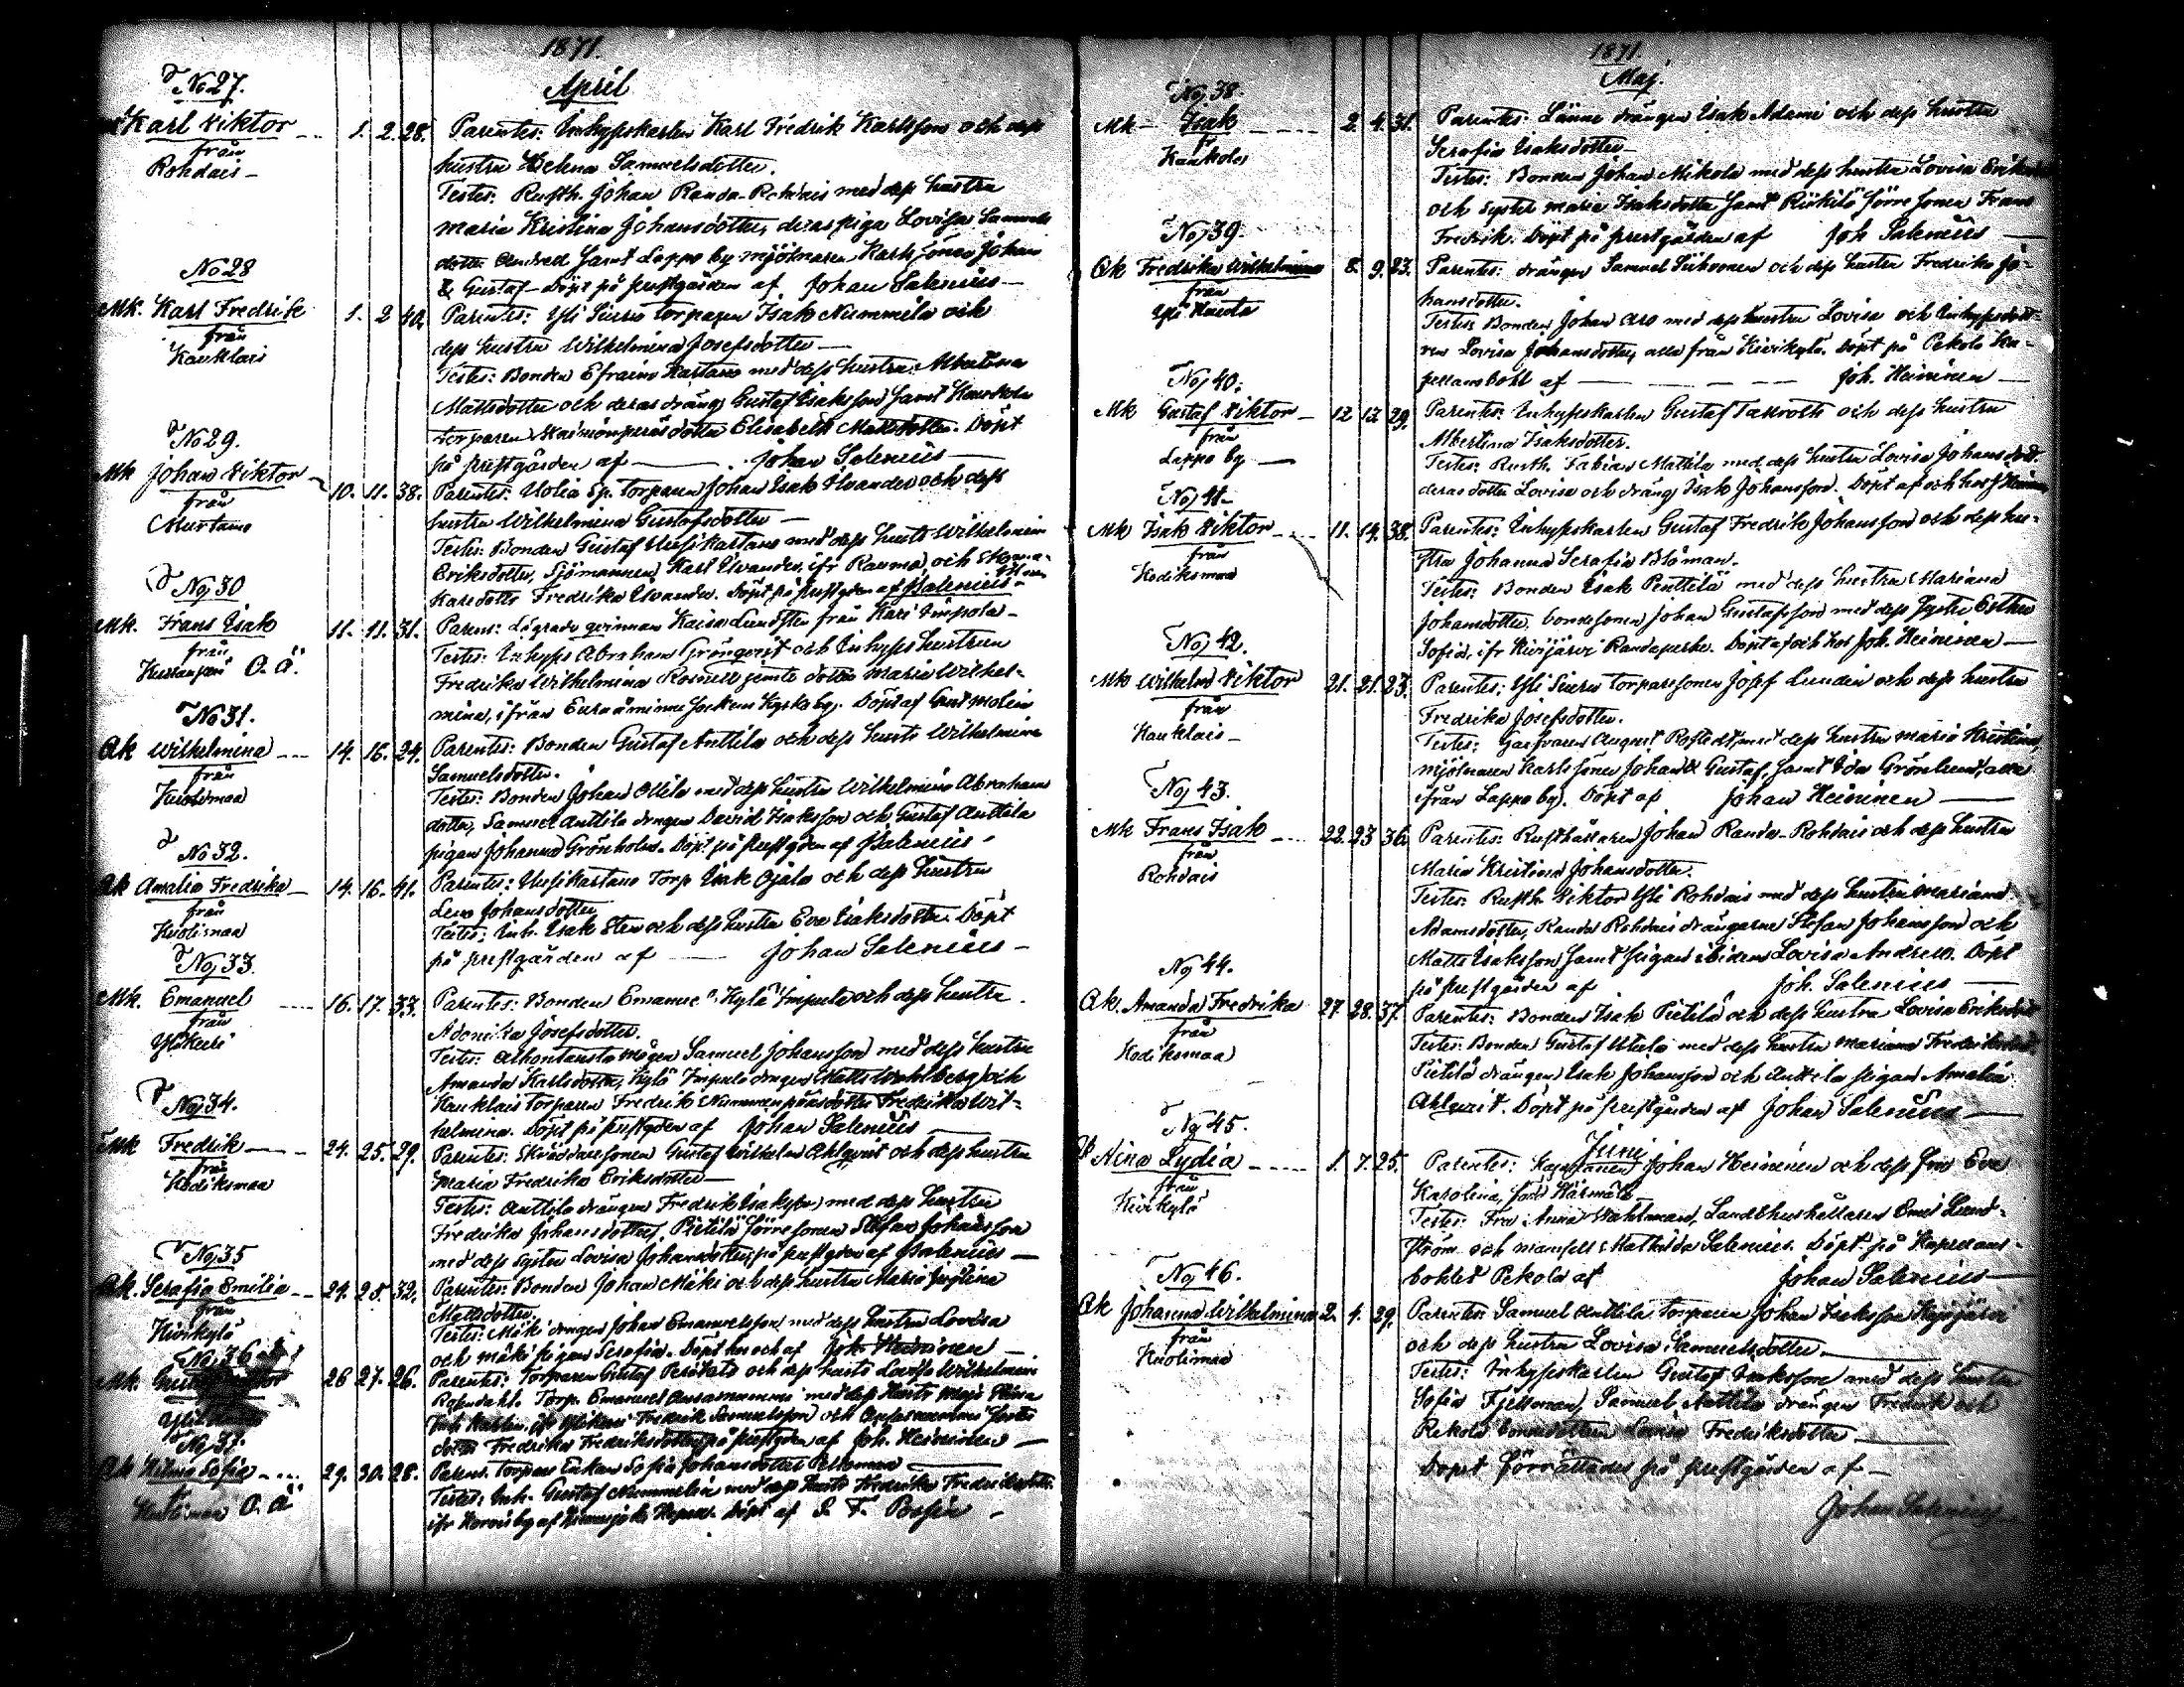 1871.
April
No 27.
Karl Viktor 1. 2. 28. Parentes: Inhyseskarlen Karl Fredrik Karlsson och dess
från
Rohdais
hustru Helena Samuelsdotter.
Testes: Rusth. Johan Randa-Rohdais med dess hustru
Maria Kristina Johansdotter, deras piga Lovisa Samuels
dotter samt Lappo by mjölnaren Karls söner Johan
& Gustaf. Döpt på prestgården af Johan Salenius
No 28
Mk. Karl Fredrik 1. 2 40. Parentes: Yli Siuru torparen Isak Nummila och
från
Kauklais
dess hustru Wilhelmina Josefsdotter
Testes: Bonden Efraim Kartano med dess hustru Albertina
Mattsdotter och deras dräng Gustaf Isaksson samt
torparen dotter Elisabeth Mattsdotter. Döpt
på prestgården af Johan Salenius
No 29.
Mk Johan Viktor 10. 11. 38. Parentes: Torparen Johan Isak Elvander och dess
från
hustru Wilhelmina Gustafsdotter
Testes: Bonden Gustaf Uusikartano med dess hustr Wilhelmin
Eriksdotter, Sjömannen Karl Elvander, ifr Rauma, och
Fredrika Elvander. Döpt på prestgden af J Salenius
No 30
Mk. Frans Isak 11. 11. 31. Parens: Lägrade qvinnan Kaisa Lundsten från
från
O. Ä.
Testes: Inhyses Abraham Grönqvist och Inhyses hustrun
Fredrika Wilhelmina jemte dotter Maria Wilhel-
mina, ifrån Euraåminne Socken. Döpt af
No 31.
Qk Wilhelmina 14. 16. 24. Parentes: Bonden Gustaf Anttila och dess hustr Wilhelmina
från
Kuolimaa
Samuelsdotter.
Testes: Bonden Johan Ollila med dess hustru Wilhelmina Abrahams
dotter, Samuel Anttila drängen David Isaksson och Gustaf Anttila
pigan Johanna Grönholm. Döpt på prestgden af J Salenius
No 32.
Qk Amalia Fredrika 14. 16. 41. Parentes: Uusikartano Torp Isak Ojala och dess hustru
från
Kuolimaa
Lena Johansdotter
Testes: Inh. Isak Sten och dess hustru Eva Isaksdotter. Döpt
på prestgården af Johan Salenius
No 33.
Mk. Emanuel 16. 17. 33. Parentes: Bonden Emanuel Kylä Impola och dess hustru
från
Ylikieri
Josefsdotter.
Testes: mågen Samuel Johansson med dess hustru
Amanda Karlsdotter, Kylä Impola drängen Matts Wahlberg och
Kauklais torparen Fredrik dotter Fredrika Wil-
helmina. Döpt på prestgden af Johan Salenius
No 34.
Mk Fredrik 24. 25. 29. Parentes: Skräddaresonen Gustaf Wilhelm Ahlqvist och dess hustru
från
Kodiksmaa
Maria Fredrika Eriksdotter
Testes: Anttila drängen Fredrik Isaksson med dess hustru
Fredrika Johansdotter, Pietilä Sonen Stefan Johansson
med dess syster Lovisa Johansdotter, på prestgden af J Salenius
No 35
Qk. Serafia Emilia 24. 25. 32. Parentes: Bonden Johan Mäki och dess hustru Maria Justina
från
Kivikylä
Mattsdotter
Testes: Mäki drängen Johan Emanuelsson med dess hustru Lovisa
och Mäki pigan Serafia. Döpt hos och af Joh. Heininen
No 36
Mk. Gustaf Viktor 26 27. 26. Parentes: Torparen Gustaf och dess hustr Lovisa Wilhelmina
Rosendahl. Torp. Emanuel med dess hustr Maja Stina
Fredrik Samuelsson och
dotter Fredrika Fredriksdotter, på prestgden af Joh. Heininen
No 37.
Qk Wilma Sofia 29. 30. 28. Parens: Torpare Enkan Sofia Johansdotter
O. Ä.
Testes: Inh. Gustaf Nummelin med dess hustr Fredrika Fredriksdotter
Döpt af
1871.
Maj.
No 38.
Mk Isak 2. 4. 31. Parentes: Länne drängen Isak Adami och dess hustru
fr
Kaukola
Serafia Isaksdotter
Testes: Bonden Johan Mikola med dess hustru Lovisa Eriksd
och syster Maria Isaksdotter samt Sonen Frans
Fredrik. Döpt på prestgården af Joh Salenius
No 39.
Qk Fredrika Wilhelmina 8. 9. 23. Parentes: drängen Samuel Siikonen och dess hustru Fredrika Jo-
från
Yli Kauta
hansdotter.
Testes: Bonden Johan Aro med dess hustru Lovisa och
Lovisa Johansdotter, alla från Kivikylä. Döpt på Pekola Ka-
pellansbohl af Joh. Heininen
No 40.
Mk Gustaf Viktor 12 13 29. Parentes: Inhyseskarlen Gustaf Taxvoth och dess hustru
från
Lappo by
Albertina Isaksdotter.
Testes: Rusth. Fabian Mattila med dess hustru Lovisa Johansdot.
deras dotter Lovisa och dräng Isak Johansson. Döpt af och hos J Heininen
No 41.
Mk Isak Viktor 11. 14. 38. Parentes: Inhyseskarlen Gustaf Fredrik Johansson och dess hu-
från
Kodiksmaa
stru Johanna Serafia Blåman.
Testes: Bonden Isak Penttilä med dess hustru Mariana
Johansdotter, bondesonen Johan Gustafsson med dess syster Esther
Sofia, ifr Döpt af och hos Joh. Heininen
No 42.
Mk Wilhelm Viktor 21. 21. 23. Parentes: Yli Siuru torparesonen Josef Lundin och dess hustru
från
Kauklais
Fredrika Josefsdotter.
Testes: Garfvaren August Rostedt med dess hustru Maria Kristina,
mjölnaren Karls söner Johan & Gustaf, samt Ida Grönlund, alla
ifrån Lappo by. Döpt af Johan Heininen
No 43.
Mk Frans Isak 22. 23 36. Parentes: Rusthållaren Johan Randa-Rohdais och dess hustru
från
Rohdais
Maria Kristina Johansdotter.
Testes: Rusth. Viktor Yli Rohdais med dess hustru Mariana
Adamsdotter, Randa Rohdais drängarne Stefan Johansson och
Matts Isaksson samt pigan ibidem Lovisa Andrew. Döpt
på prestgården af Joh. Salenius
No 44.
Qk. Amanda Fredrika 27. 28. 37. Parentes: Bonden Isak Pietilä och dess hustru Lovisa Eriksdot
från
Kodiksmaa
Testes: Bonden Gustaf Utula med dess hustru Mariana Fredriksdot.
Pietilä drängen Isak Johansson och Anttila pigan Amalia
Ahlqvist. Döpt på prestgården af Johan Salenius
Juni
No 45.
Aina Lydia 1. 7. 25. Parentes: Kapellanen Johan Heininen och dess fru Eva
från
Kivikylä
Karolina, född
Testes: Fru Anna Wahlman, Landthushållaren Emil Lund-
ström och mamsell Mathilda Salenius. Döpt på Kapellans-
bohlet Pekola af Johan Salenius
No 46.
Qk Johanna Wilhelmina 2. 4. 29. Parentes: Samuel Anttila torparen Johan Isaksson
från
Kuolimaa
och dess hustru Lovisa Samuelsdotter.
Testes: Inhyseskarlen Gustaf Isaksson med dess hustru
Sofia Fjellman, Samuel Anttila drängen Fredrik och
Pekola bondedottern Lovisa Fredriksdotter
Dopet förrättades på prestgården af
Johan Salenius